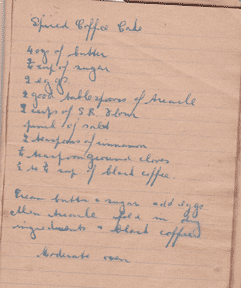 Spiced Coffee Cake
4 ozs of butter
½ cup of sugar
2 eggs
2 good tablespoons of treacle
2 cups of S.R. flour
pinch of salt
2 teaspoons of cinnamon
½ teaspoon ground cloves
to cup of black coffee.
Cream butter & sugar add eggs
then treacle fold in dry
ingredients & black coffee
Moderate oven